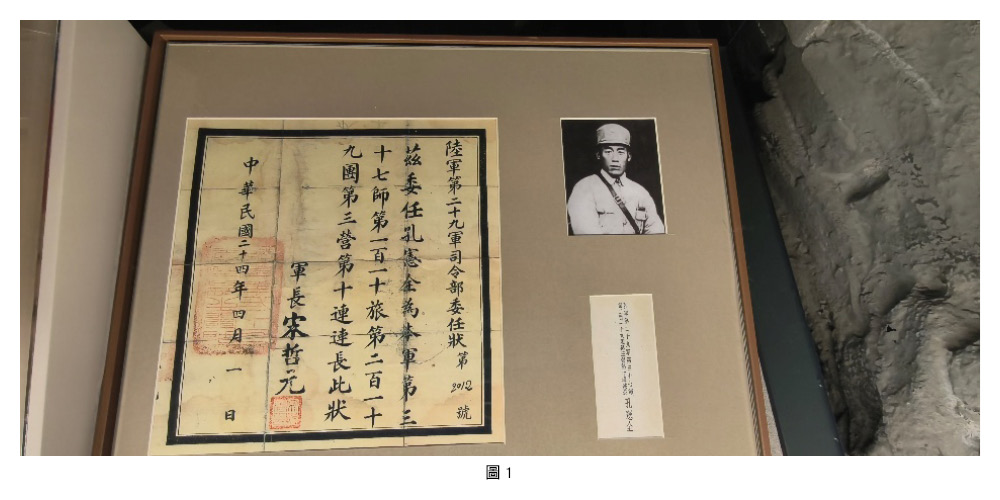 陸軍第二十九軍司令部委任狀第2012號
茲委任孔憲全為本軍第三
十七師第一百一十旅第二百一十
九團第三營第十連連長此狀
軍長宋哲元
中華民國二十四年四月一日
孔憲全
圖1